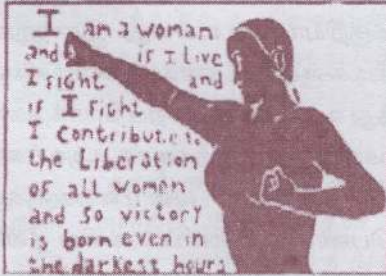 I am a woman
and if I live
I fight and
if I fight
I contribute to
the Liberation
of all women
and so victory
is born even in
the darkest hours